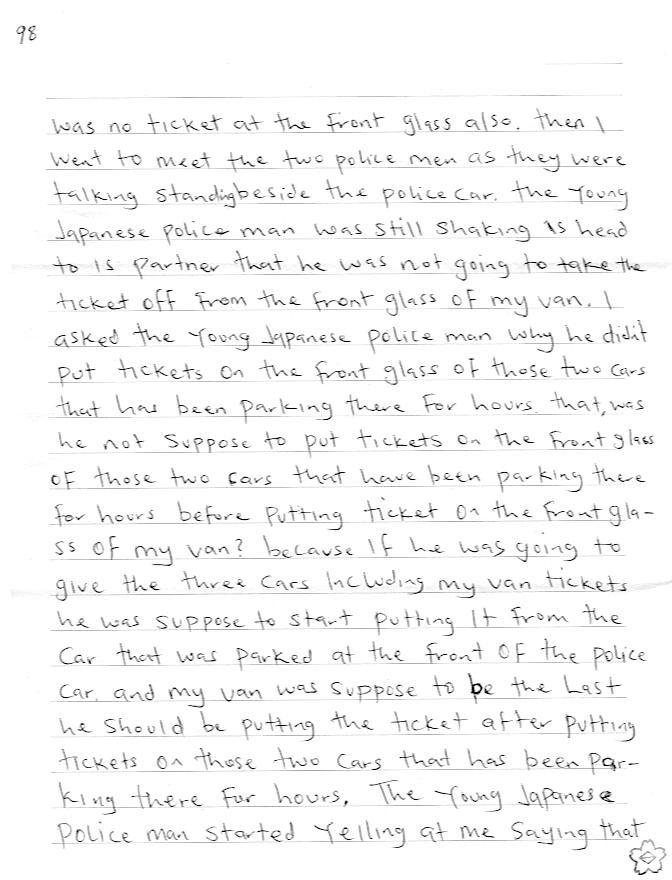 98
was no ticket at the front glass also. then I
went to meet the two police men as they were
talking standingbeside the police car. the Young
Japanese police man was still shaking is head
to is partner that he was not going to take the
ticket off from the front glass of my van. I
asked the Young Japanese police man why he didn't
put tickets on the front glass of those two cars
that has been parking there for hours. that, was
he not suppose to put tickets on the front glass
OF those two cars that have been parking there
for hours before putting ticket on the front gla-
ss of my van? because if he was going to
give the three cars including my van tickets
he was suppose to start putting it from the
car that was parked at the front of the police
car. and my van was suppose to be the last
he should be putting the ticket after putting
tickets on those two cars that has been par-
king there for hours. The Young Japanese
police man started yelling at me saying that